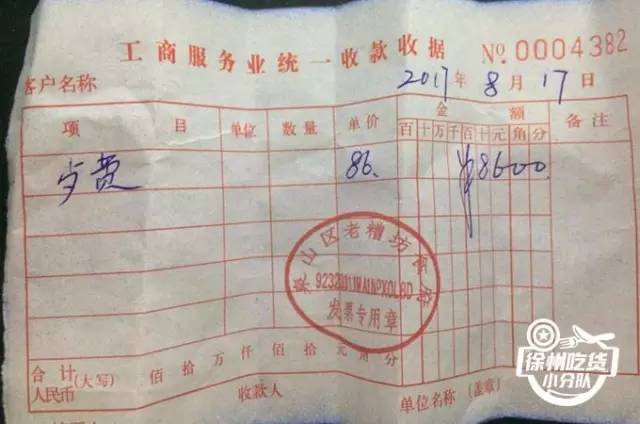 工商服务业统一收款收据 No.0004382
客户名称 2017年8月17日
项目 单位 数量 单价 金额 备注
百十万千百十元角分
餐费 86. ¥8600
泉山区老糟坊
发票专用章
合计(大写) 佰拾万仟佰拾元角分
人民币 收款人 单位名称(盖章)
徐州吃货
小分队